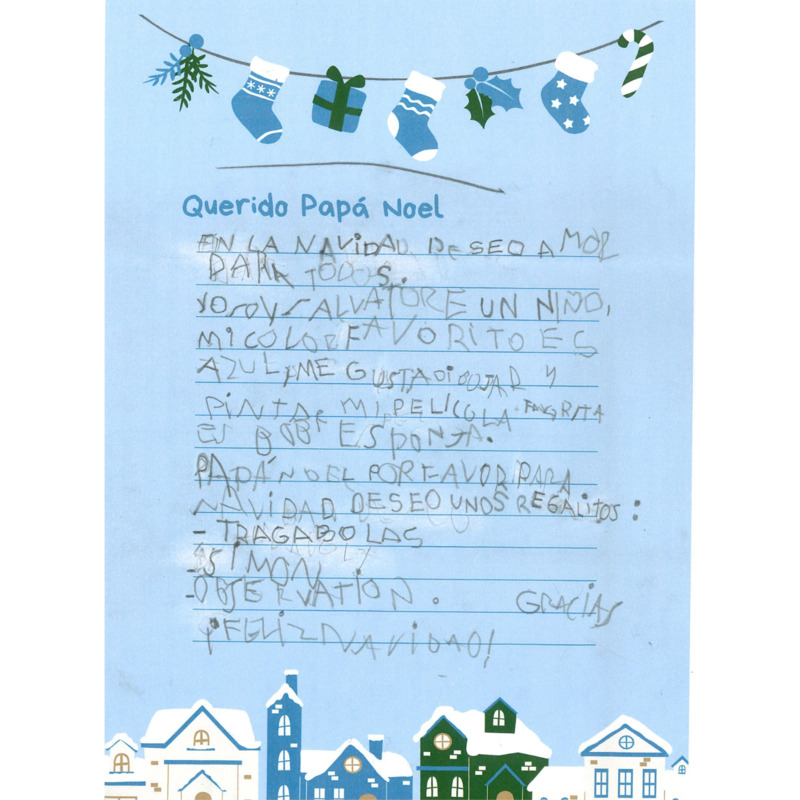 Querido Papá Noel
EN LA NAVIDAD DESEO AMOR
PARA TODOS.
YO SOY SALVATORE UN NIÑO,
MI COLOR FAVORITO ES
AZUL, ME GUSTA DIBUJAR Y
PINTAR MI PELICULA FAVORITA
ES BOB ESPONJA.
PAPÁ NOEL POR FAVOR PARA
NAVIDAD DESEO UNOS REGALITOS:
- TRAGABOLAS
- SIMON
- OBSERVATION. GRACIAS
¡FELIZ NAVIDAD!